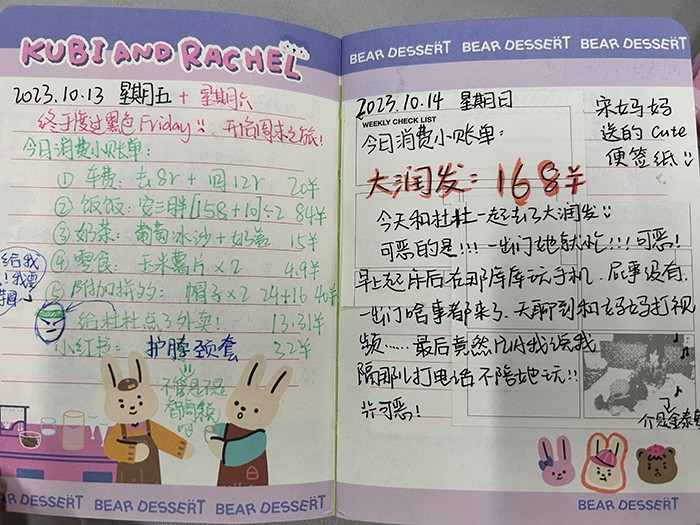 KUBI AND RACHEL
2023.10.13 星期五 + 星期六
终于度过黑色Friday!! 开启周末之旅!
今日消费小账单:
① 车费: 去8r + 回12r 20羊
② 饭饭: 安三胖[158+10]÷2 84羊
③ 奶茶: 葡萄冰沙+奶盖 15羊
④ 零食: 玉米薯片×2 4.9羊
帽子×2 24+16 40羊
给我
给杜杜点了外卖! 13.31羊
小红书: 护脖颈套 32羊
不管是不是
智商税
BEAR DESSERT BEAR DESSERT BEAR DESSERT
BEAR DESSERT BEAR DESSERT BEAR DESSERT
2023.10.14 星期日
WEEKLY CHECK LIST
今日消费小账单:
宋妈妈
送的Cute
便签纸!!
大润发: 168羊
今天和杜杜一起去了大润发!!
可恶的是!!! 一出门她就忙!!! 可恶!
早上起床后在那库库玩手机.屁事没有.
一出门啥事都来了.天聊到和好妈打视
频…… 最后竟然
隔那儿打电话不陪她玩!!
可恶!
BEAR DESSERT